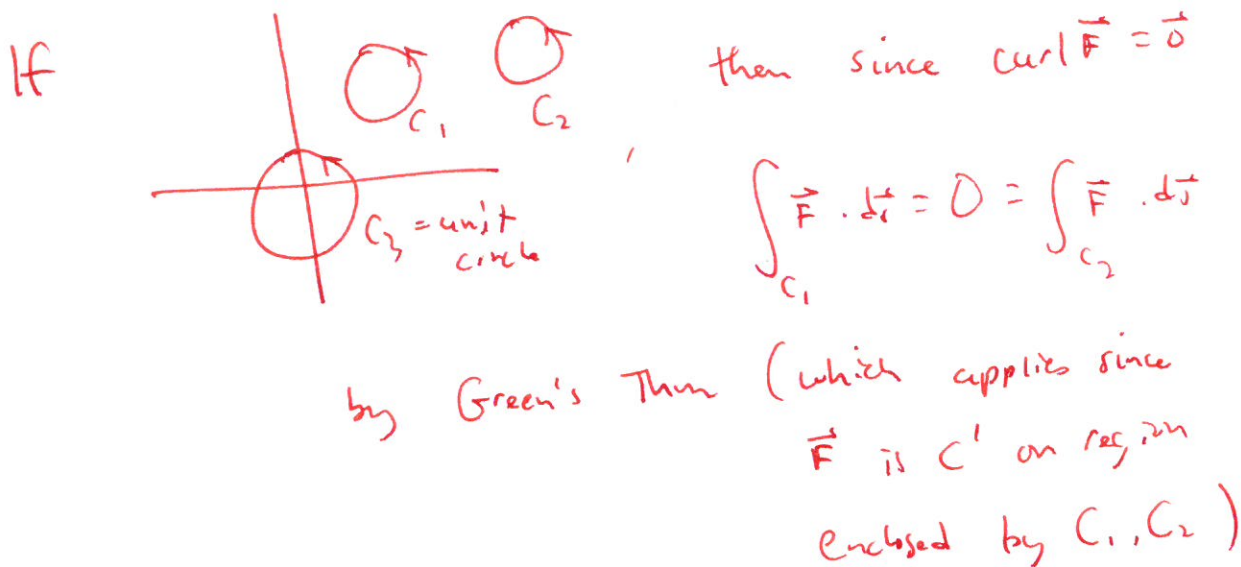 If
C₁
C₂
C₃ = unit
circle
,
then since curl F⃗ = 0⃗
∫_C₁ F⃗ · dr⃗ = 0 = ∫_C₂ F⃗ · dr⃗
by Green's Thm (which applies since
F⃗ is C¹ on region
enclosed by C₁, C₂)